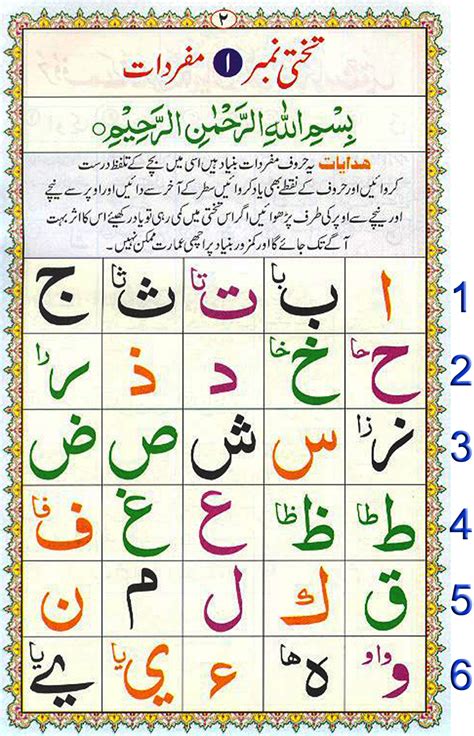 ۲
تختی نمبر ۱ مفردات
بِسْمِ اللّٰهِ الرَّحْمٰنِ الرَّحِیْمِ ○
ھدایات یہ حروف مفردات بنیاد ہیں اسی میں بچے کے تلفظ درست
کروائیں اور حروف کے نقطے بھی یاد کروائیں سطر کے آخر سے دائیں اور اوپر سے نیچے
اور نیچے سے اوپر کی طرف پڑھوائیں اگر اس تختی میں کمی رہی تو یاد رکھیئے اس کا اثر بہت
آگے تک جائے گا اور کمزور بنیاد پر اچھی عمارت ممکن نہیں۔
1 ا ب با ت تا ث ثا ج
2 ح حا خ خا د ذ ر را
3 ز زا س ش ص ض
4 ط طا ظ ظا ع غ ف فا
5 ق ك ل م ن
6 و واو ه ها ء ي یا ے یا